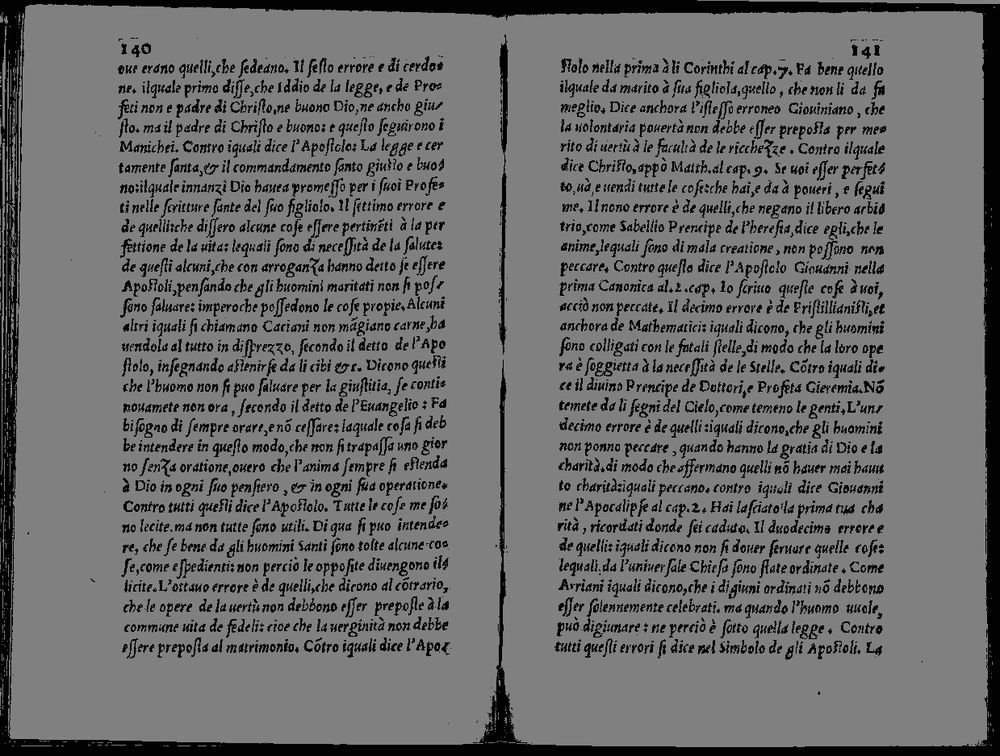 140
oue erano quelli, che sedeano. Il sesto errore e di cerdo-
ne. ilquale primo disse, che Iddio de la legge, e de Pro-
feti non e padre di Christo, ne buono Dio, ne ancho giu-
sto. ma il padre di Christo e buono: e questo seguirono i
Manichei. Contro iquali dice l'Apostolo: La legge e cer
tamente santa, & il commandamento santo giusto e buo-
no: ilquale innanzi Dio hauea promesso per i suoi Profe-
ti nelle scritture sante del suo figliolo. Il settimo errore e
de quelli: che dissero alcune cose essere pertinẽti à la per
fettione de la uita: lequali sono di necessità de la salute:
de questi alcuni, che con arroganza hanno detto se essere
Apostoli, pensando che gli huomini maritati non si pos-
sono saluare: imperoche possedono le cose propie. Alcuni
altri iquali si chiamano Caciani non mãgiano carne, ha
uendola al tutto in disprezzo, secondo il detto de l'Apo
stolo, insegnando astenirse da li cibi &c. Dicono questi
che l'huomo non si puo saluare per la giustitia, se conti-
nouamete non ora, secondo il detto de l'Euangelio: Fa
bisogno di sempre orare, e nõ cessare: laquale cosa si deb
be intendere in questo modo, che non si trapassa uno gior
no senza oratione, ouero che l'anima sempre si estenda
à Dio in ogni suo pensiero, & in ogni sua operatione.
Contro tutti questi dice l'Apostolo. Tutte le cose me so-
no lecite. ma non tutte sono utili. Di qua si puo intende-
re, che se bene da gli huomini Santi sono tolte alcune co-
se, come espedienti: non perciò le opposite diuengono il-
licite. L'ottauo errore è de quelli, che dicono al cõtrario,
che le opere de la uertù non debbono esser preposte à la
commune uita de fedeli: cioe che la uerginità non debbe
essere preposta al matrimonio. Cõtro iquali dice l'Apo-
141
stolo nella prima à li Corinthi al cap. 7. Fa bene quello
ilquale da marito à sua figliola, quello, che non li da fa
meglio. Dice anchora l'istesso erroneo Giouiniano, che
la uolontaria pouertà non debbe esser preposta per me-
rito di uertù à le facultà de le ricchezze. Contro ilquale
dice Christo, appò Matth. al cap. 9. Se uoi esser perfet-
to, uà, e uendi tutte le cose: che hai, e da à poueri, e segui
me. Il nono errore è de quelli, che negano il libero arbi-
trio, come Sabellio Prencipe de l'heresia, dice egli, che le
anime, lequali sono di mala creatione, non possono non
peccare. Contro questo dice l'Apostolo Giouanni nella
prima Canonica al. 2. cap. Io scriuo queste cose à uoi,
acciò non peccate. Il decimo errore è de Pristillianisti, et
anchora de Mathematici: iquali dicono, che gli huomini
sono colligati con le fatali stelle, di modo che la loro ope
ra è soggietta à la necessità de le Stelle. Cõtro iquali di-
ce il diuino Prencipe de Dottori, e Profeta Gieremia. Nõ
temete da li segni del Cielo, come temeno le genti. L'un-
decimo errore è de quelli: iquali dicono, che gli huomini
non ponno peccare, quando hanno la gratia di Dio e la
charità, di modo che affermano quelli nõ hauer mai hauu
to charità: iquali peccano. contro iquali dice Giouanni
ne l'Apocalipse al cap. 2. Hai lasciato la prima tua cha
rità, ricordati donde sei caduto. Il duodecimo errore e
de quelli: iquali dicono non si douer seruare quelle cose:
lequali da l'uniuersale Chiesa sono state ordinate. Come
Arriani iquali dicono, che i digiuni ordinati nõ debbono
esser solennemente celebrati. ma quando l'huomo uuole,
può digiunare: ne perciò è sotto quella legge. Contro
tutti questi errori si dice nel Simbolo de gli Apostoli. La